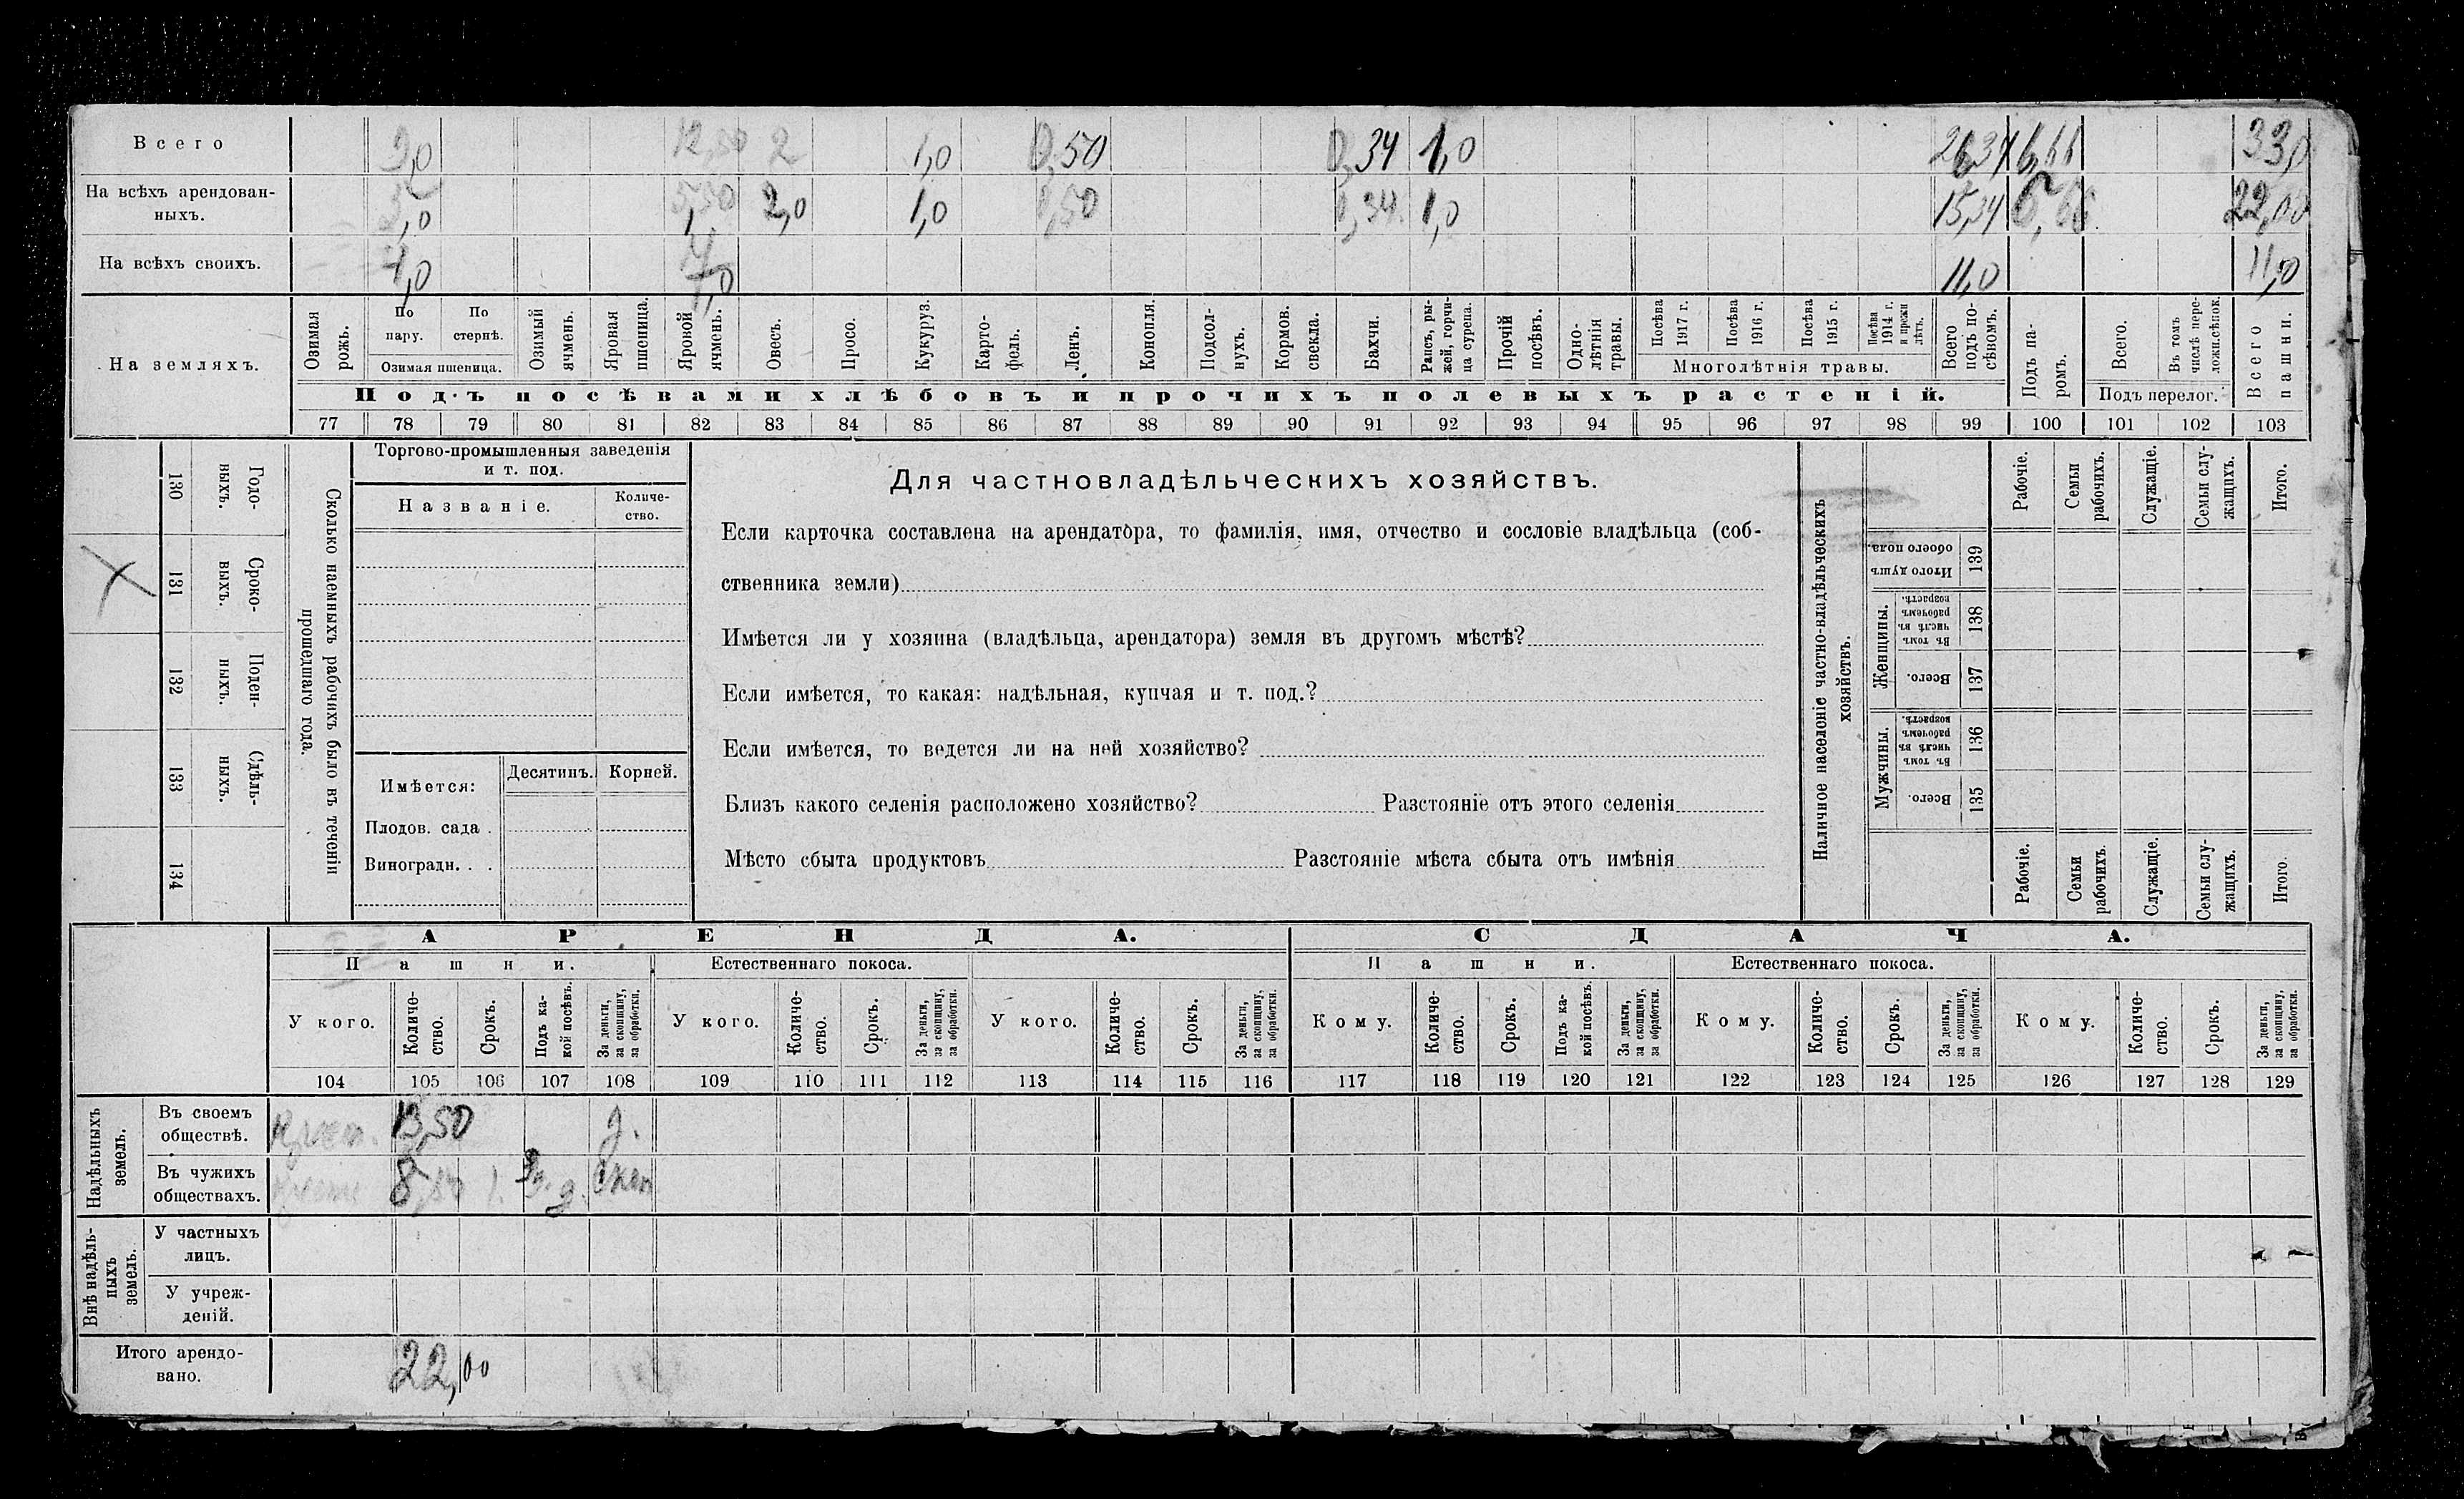 Всего 9,0 12,50 2 1,0 0,50 0,34 1,0 26,34 6,66 33,0
На всѣхъ арендован-
ныхъ. 5,0 5,50 2,0 1,0 0,50 0,34 1,0 15,34 6,66 22,00
На всѣхъ своихъ. 4,0 7,0 11,0 11,0
На земляхъ.
Озимая рожь.
По пару.
По стернѣ.
Озимая пшеница.
Озимый ячмень.
Яровая пшеница.
Яровой ячмень.
Овесъ.
Просо.
Кукуруз.
Карто-
фель.
Ленъ.
Конопля.
Подсол-
нухъ.
Кормов. свекла.
Бахчи.
Рапсъ, ры-
жей, горчи-
ца сурепа.
Прочій посѣвъ.
Одно-
лѣтнія травы.
Посѣва 1917 г.
Посѣва 1916 г.
Посѣва 1915 г.
Посѣва 1914 г. и прежн лѣтъ.
Многолѣтнія травы.
Всего подъ по-
сѣвомъ.
Подъ па-
ромъ.
Всего.
Въ томъ числѣ пере-
ложн.сѣнок.
Подъ перелог.
Всего пашни.
Подъ посѣвами хлѣбовъ и прочихъ полевыхъ растеній.
77 78 79 80 81 82 83 84 85 86 87 88 89 90 91 92 93 94 95 96 97 98 99 100 101 102 103
130 Годо-
ныхъ.
131 Сроко-
выхъ.
132 Поден-
ныхъ.
133 Сдѣль-
ныхъ.
134
Сколько наемныхъ рабочихъ было въ теченіи
прошедшаго года.
Торгово-промышленныя заведенія
и т. под.
Названіе.
Количе-
ство.
Имѣется: Десятинъ. Корней.
Плодов. сада .
Виноградн. . .
Для частновладѣльческихъ хозяйствъ.
Если карточка составлена на арендатора, то фамилія, имя, отчество и сословіе владѣльца (соб-
ственника земли)
Имѣется ли у хозяина (владѣльца, арендатора) земля въ другомъ мѣстѣ?
Если имѣется, то какая: надѣльная, купчая и т. под.?
Если имѣется, то ведется ли на ней хозяйство?
Близъ какого селенія расположено хозяйство? Разстояніе отъ этого селенія
Мѣсто сбыта продуктовъ Разстояніе мѣста сбыта отъ имѣнія
Наличное населеніе частно-владѣльческихъ
хозяйствъ.
Рабочіе.
Семьи рабочихъ.
Служащіе.
Семьи слу-
жащихъ.
Итого.
Итого душъ обоего пола. 139
Женщины.
Въ томъ числѣ въ рабочемъ возрастѣ. 138
Всего. 137
Мужчины.
Въ томъ числѣ въ рабочемъ возрастѣ. 136
Всего. 135
Рабочіе.
Семьи рабочихъ.
Служащіе.
Семьи слу-
жащихъ.
Итого.
АРЕНДА. СДАЧА.
Пашни. Естественнаго покоса. Пашни. Естественнаго покоса.
У кого.
Количе-
ство.
Срокъ.
Подъ ка-
кой посѣвъ.
За деньги,
за скопщину,
за обработки.
У кого.
Количе-
ство.
Срокъ.
За деньги,
за скопщину,
за обработки.
У кого.
Количе-
ство.
Срокъ.
За деньги,
за скопщину,
за обработки.
Кому.
Количе-
ство.
Срокъ.
Подъ ка-
кой посѣвъ.
За деньги,
за скопщину,
за обработки.
Кому.
Количе-
ство.
Срокъ.
За деньги,
за скопщину,
за обработки.
Кому.
Количе-
ство.
Срокъ.
За деньги,
за скопщину,
за обработки.
104 105 106 107 108 109 110 111 112 113 114 115 116 117 118 119 120 121 122 123 124 125 126 127 128 129
Надѣльныхъ земель.
Въ своемъ
обществѣ. 13,50 д.
Въ чужихъ
обществахъ. 8,50 1.
Внѣ надѣль-
ныхъ земель.
У частныхъ
лицъ.
У учреж-
деній.
Итого арендо-
вано. 22,00